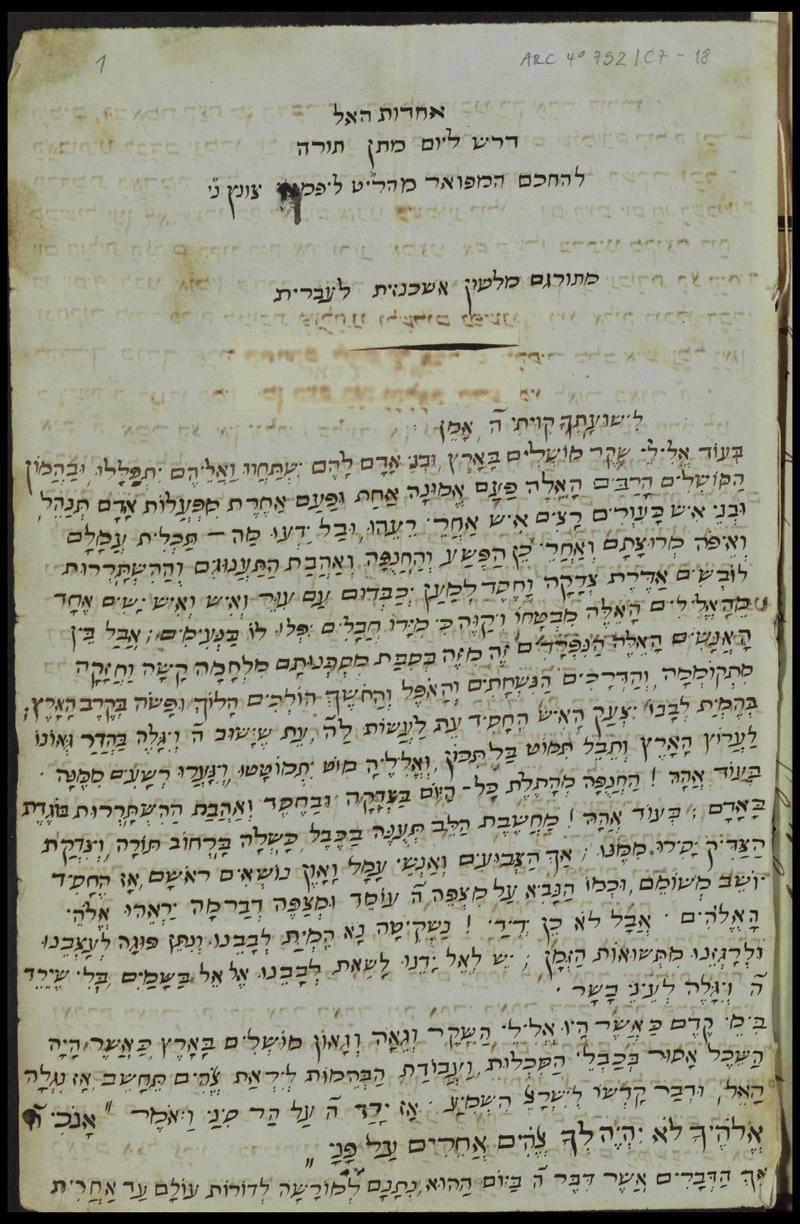 1
ARC 4° 792/C7-18
אחדות האל
דרש ליום מתן תורה
להחכם המפואר מהרי"ט ליפמאן צונץ נ"י
מתורגם מלשון אשכנזית לעברית
לִישׁוּעָתְךָ קִוִּיתִי ה', אָמֵן
בְּעוֹד אֱלִילֵי שֶׁקֶר מוֹשְׁלִים בָּאָרֶץ, וּבְנֵי אָדָם לָהֶם יִשְׁתַּחֲווּ וַאֲלֵיהֶם יִתְפַּלָּלוּ, וּבַהֲמוֹן
הַמּוֹשְׁלִים הָרַבִּים הָאֵלֶּה פַּעַם אֱמוּנָה אַחַת וּפַעַם אַחֶרֶת מִפְעֲלוֹת אָדָם תְּנַהֵל,
וּבְנֵי אִישׁ כָּעִוְרִים רָצִים אִישׁ אַחֲרֵי רֵעֵהוּ, וּבַל יֵדְעוּ מַה תַּכְלִית עֲמָלָם
וְאֵיפֹה מְרוּצָתָם וְאַחֲרֵי כֵן הַפֶּשַׁע וְהַחֲנֻפָּה וְאַהֲבַת הַתַּעֲנוּגִים וְהַהִשְׂתָּרְרוּת
לוֹבְשִׁים אַדֶּרֶת צְדָקָה וָחֶסֶד לְמַעַן יִכְבְּדוּם עַם עִוֵּר וְאִישׁ וְאִישׁ יָשִׂים אֶחָד
מֵהָאֱלִילִים הָאֵלֶּה מִבְטָחוֹ וִיקַוֶּה כִּי מִיָּדוֹ חֲבָלִים יִפְּלוּ לוֹ בַּנְּעִימִים; אֲבָל בֵּין
הָאֲנָשִׁים הָאֵלֶּה הַנִּפְרָדִים זֶה מִזֶּה בְּסִבַּת מִסְכְּנוּתָם מִלְחָמָה קָשָׁה וַחֲזָקָה
מִתְקוֹמְמָה, וְהַדְּרָכִים הַנִּשְׁחָתִים וְהָאֹפֶל וְהַחֹשֶׁךְ הוֹלְכִים הָלוֹךְ וּפָשֹׂה בְּקֶרֶב הָאָרֶץ;
בְּהֶמְיַת לְבָבוֹ יִצְעַק הָאִישׁ הֶחָסִיד עֵת לַעֲשׂוֹת לַה', עֵת שֶׁיָּשׁוּב ה' וְיִגָּלֶה בַּהֲדַר גְּאוֹנוֹ
לַעֲרוֹץ הָאָרֶץ וְתֵבֵל תִּמּוֹט בַּל תִּכּוֹן, וֶאֱלִילֶיהָ מוֹט יִתְמוֹטָטוּ וְיִנָּעֲרוּ רְשָׁעִים מִמֶּנָּה.
בְּעוֹד אֲהָהּ! הַחֲנֻפָּה מְהַתֶלֶת כָּל־הַיּוֹם בַּצְּדָקָה וּבַחֶסֶד וְאַהֲבַת הַהִשְׂתָּרְרוּת בּוֹגֶדֶת
בָּאָדָם; בְּעוֹד אֲהָהּ! מַחֲשֶׁבֶת הַלֵּב תְּעֻנֶּה בַּכֶּבֶל, כָּשְׁלָה בָרְחוֹב תּוֹרָה, וְצִדְקַת
הַצַּדִּיק יָסִירוּ מִמֶּנּוּ; אַךְ הַצְּבוּעִים וְאַנְשֵׁי עָמָל וָאָוֶן נוֹשְׂאִים רֹאשָׁם, אָז הֶחָסִיד
יוֹשֵׁב מְשׁוֹמֵם, וּכְמוֹ הַנָּבִיא עַל מִצְפֵּה ה' עוֹמֵד וּמְצַפֶּה דְּבַר מָה יַרְאֵהוּ אֱלֹהֵי
הָאֱלֹהִים. אֲבָל לֹא כֵן יְדִידַי! נַשְׁקִיטָה נָא הֶמְיַת לְבָבֵינוּ וְנִתֵּן פּוּגָה לְעָצְבֵנוּ
וּלְרָגְזֵנוּ מִתְּשׁוּאוֹת הַזְּמַן; יֵשׁ לְאֵל יָדֵנוּ לָשֵׂאת לְבָבֵנוּ אֶל אֵל בַּשָּׁמַיִם, בְּלִי שֶׁיֵּרֵד
ה' וְיִגָּלֶה לְעֵינֵי בָשָׂר.
בִּימֵי קֶדֶם כַּאֲשֶׁר הָיוּ אֱלִילֵי הַשֶּׁקֶר וְגֵאָה וְגָאוֹן מוֹשְׁלִים בָּאָרֶץ, כַּאֲשֶׁר הָיָה
הַשֵּׂכֶל אָסוּר בְּכַבְלֵי הַסִּכְלוּת, וַעֲבוֹדַת הַבְּהֵמוֹת לְיִרְאַת אֱלֹהִים תֵּחָשֵׁב, אָז נִגְלָה
הָאֵל, וּדְבַר קָדְשׁוֹ לְיִשְׂרָאֵל הִשְׁמִיעַ. אָז יָרַד ה' עַל הַר סִינַי וַיֹּאמֶר "אָנֹכִי ה'
אֱלֹהֶיךָ לֹא יִהְיֶה לְךָ אֱלֹהִים אֲחֵרִים עַל פָּנָי"
אַךְ הַדְּבָרִים אֲשֶׁר דִּבֶּר ה' בַּיּוֹם הַהוּא, נְתָנָם לְמוֹרָשָׁה לְדוֹרוֹת עוֹלָם עַד אַחֲרִית